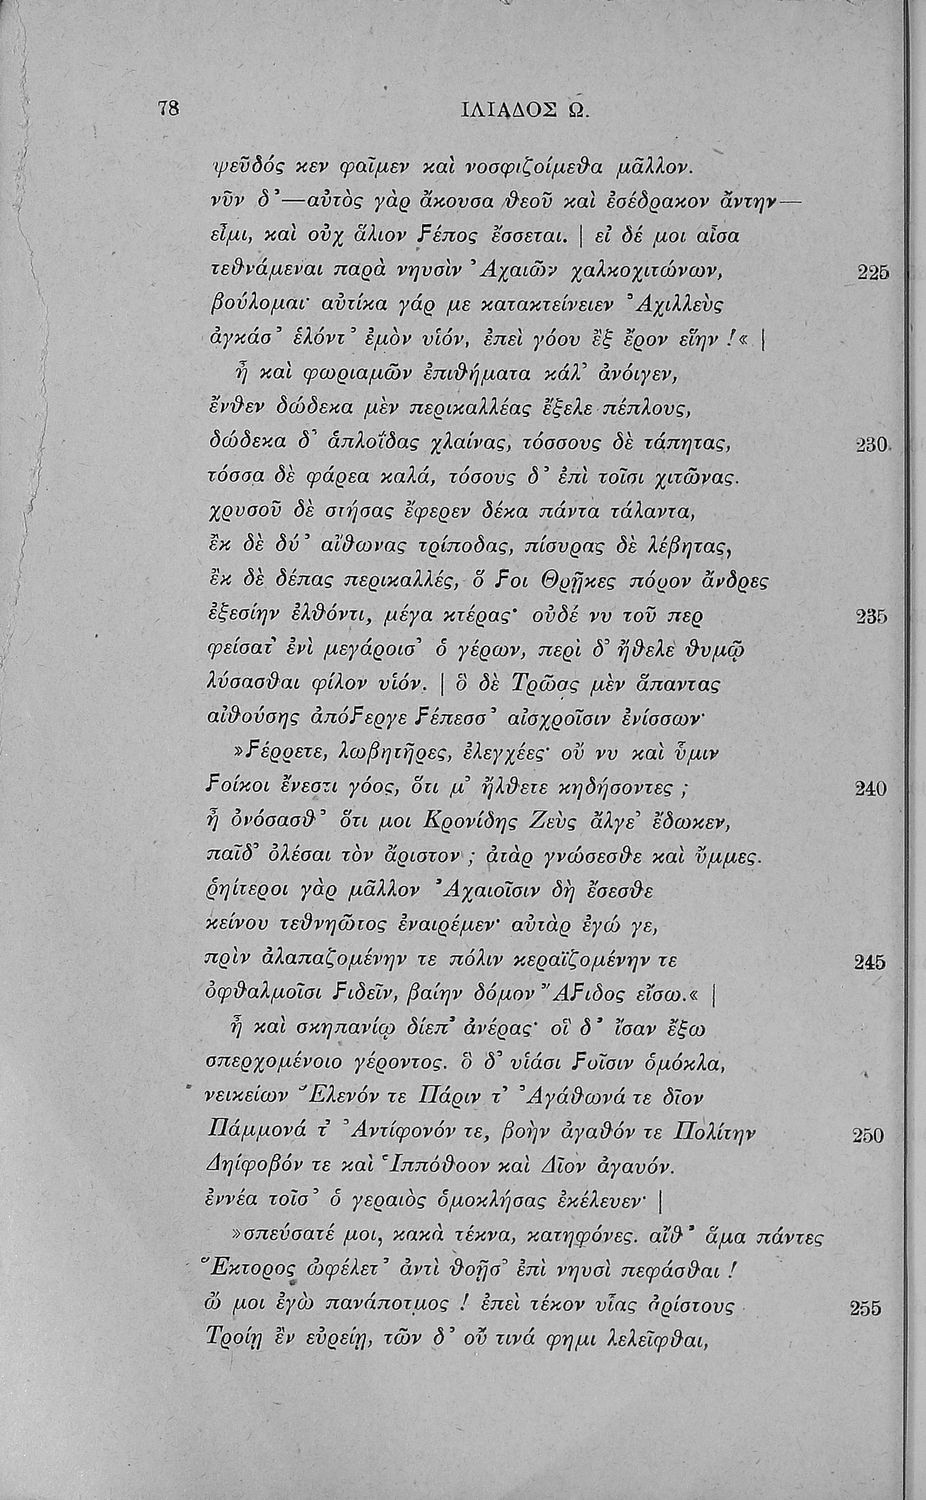 78 ΙΛΙΑΔΟΣ Ω.
ψεῦδός κεν φαῖμεν καὶ νοσφιζοίμεθα μᾶλλον.
νῦν δ’—αὐτὸς γὰρ ἄκουσα θεοῦ καὶ ἐσέδρακον ἄντην—
εἶμι, καὶ οὐχ ἅλιον Ϝέπος ἔσσεται. | εἰ δέ μοι αἶσα
τεθνάμεναι παρὰ νηυσὶν Ἀχαιῶν χαλκοχιτώνων, 225
βούλομαι· αὐτίκα γάρ με κατακτείνειεν Ἀχιλλεὺς
ἀγκάσ’ ἑλόντ’ ἐμὸν υἱόν, ἐπεὶ γόου ἒξ ἔρον εἵην !« |
ἦ καὶ φωριαμῶν ἐπιθήματα κάλ’ ἀνόιγεν,
ἔνθεν δώδεκα μὲν περικαλλέας ἔξελε πέπλους,
δώδεκα δ’ ἁπλοΐδας χλαίνας, τόσσους δὲ τάπητας, 230
τόσσα δὲ φάρεα καλά, τόσους δ’ ἐπὶ τοῖσι χιτῶνας.
χρυσοῦ δὲ στήσας ἔφερεν δέκα πάντα τάλαντα,
ἒκ δὲ δύ’ αἴθωνας τρίποδας, πίσυρας δὲ λέβητας,
ἒκ δὲ δέπας περικαλλές, ὅ Ϝοι Θρῇκες πόρον ἄνδρες
ἐξεσίην ἐλθόντι, μέγα κτέρας· οὐδέ νυ τοῦ περ 235
φείσατ’ ἐνὶ μεγάροισ’ ὁ γέρων, περὶ δ’ ἤθελε θυμῷ
λύσασθαι φίλον υἱόν. | ὃ δὲ Τρῶας μὲν ἅπαντας
αἰθούσης ἀπόϜεργε Ϝέπεσσ’ αἰσχροῖσιν ἐνίσσων·
»Ϝέρρετε, λωβητῆρες, ἐλεγχέες· οὔ νυ καὶ ὗμιν
Ϝοίκοι ἔνεστι γόος, ὅτι μ’ ἤλθετε κηδήσοντες ; 240
ἦ ὀνόσασθ’ ὅτι μοι Κρονίδης Ζεὺς ἄλγε’ ἔδωκεν,
παῖδ’ ὀλέσαι τὸν ἄριστον ; ἀτὰρ γνώσεσθε καὶ ὔμμες.
ῥηίτεροι γὰρ μᾶλλον Ἀχαιοῖσιν δὴ ἔσεσθε
κείνου τεθνηῶτος ἐναιρέμεν· αὐτὰρ ἐγώ γε,
πρὶν ἀλαπαζομένην τε πόλιν κεραϊζομένην τε 245
ὀφθαλμοῖσι Ϝιδεῖν, βαίην δόμον ἌϜιδος εἴσω.« |
ἦ καὶ σκηπανίῳ δίεπ’ ἀνέρας· οἳ δ’ ἴσαν ἔξω
σπερχομένοιο γέροντος. ὃ δ’ υἱάσι Ϝοῖσιν ὁμόκλα,
νεικείων Ἕλενόν τε Πάριν τ’ Ἀγάθωνά τε δῖον
Πάμμονά τ’ Ἀντίφονόν τε, βοὴν ἀγαθόν τε Πολίτην 250
Δηίφοβόν τε καὶ Ἱππόθοον καὶ Δῖον ἀγαυόν.
ἐννέα τοῖσ’ ὁ γεραιὸς ὁμοκλήσας ἐκέλευεν· |
»σπεύσατέ μοι, κακὰ τέκνα, κατηφόνες. αἴθ’ ἅμα πάντες
Ἕκτορος ὠφέλετ’ ἀντὶ θοῇσ’ ἐπὶ νηυσὶ πεφάσθαι !
ὤ μοι ἐγὼ πανάποτμος ! ἐπεὶ τέκον υἷας ἀρίστους 255
Τροίῃ ἒν εὐρείῃ, τῶν δ’ οὔ τινά φημι λελεῖφθαι,